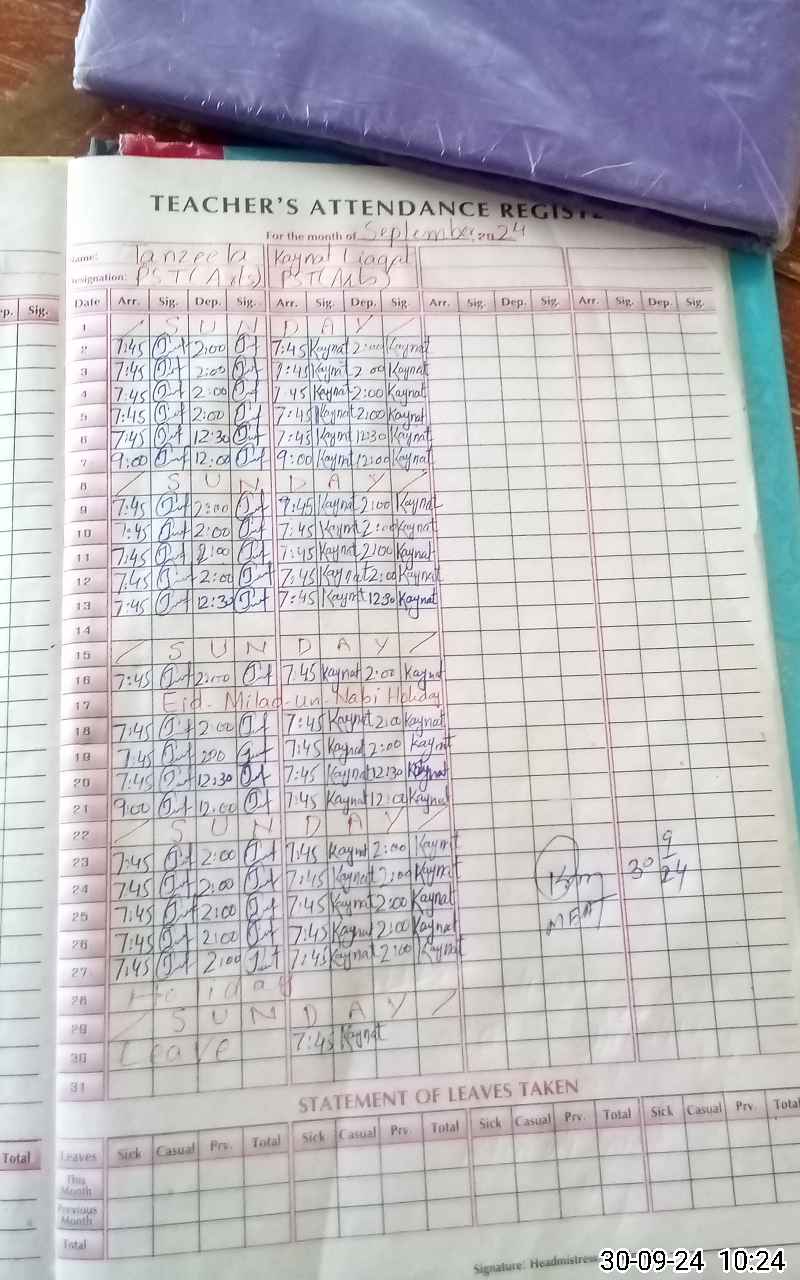 TEACHER'S ATTENDANCE REGISTE
For the month of September 2024
ame: Tanzeela Kaynat Liaqat
esignation: PST(Arts) PST(Arts)
p. Sig. Date Arr. Sig. Dep. Sig. Arr. Sig. Dep. Sig. Arr. Sig. Dep. Sig. Arr. Sig. Dep. Sig.
1 / S U N D A Y /
2 7:45 2:00 7:45 Kaynat 2:00 Kaynat
3 7:45 2:00 7:45 Kaynat 2 00 Kaynat
4 7:45 2:00 7 45 Kaynat 2:00 Kaynat
5 7:45 2:00 7:45 Kaynat 2:00 Kaynat
6 7:45 12:30 7:45 Kaynat 12:30 Kaynat
7 9:00 12:00 9:00 Kaynat 12:00 Kaynat
8 / S U N D A Y /
9 7:45 2:00 7:45 Kaynat 2:00 Kaynat
10 7:45 2:00 7:45 Kaynat 2:00 Kaynat
11 7:45 2:00 7:45 Kaynat 2:00 Kaynat
12 7:45 2:00 7:45 Kaynat 2:00 Kaynat
13 7:45 12:30 7:45 Kaynat 12:30 Kaynat
14
15 / S U N D A Y /
16 7:45 2:00 7:45 Kaynat 2:00 Kaynat
17 Eid-Milad-un-Nabi Holiday
18 7:45 2:00 7:45 Kaynat 2:00 Kaynat
19 7:45 200 7:45 Kaynat 2:00 Kaynat
20 7:45 12:30 7:45 Kaynat 12:30 Kaynat
21 9:00 12:00 7:45 Kaynat 12:00 Kaynat
22 / S U N D A Y /
23 7:45 2:00 7:45 Kaynat 2:00 Kaynat
24 7:45 2:00 7:45 Kaynat 2:00 Kaynat
25 7:45 2:00 7:45 Kaynat 2:00 Kaynat
26 7:45 2:00 7:45 Kaynat 2:00 Kaynat
27 7:45 2:00 7:45 Kaynat 2:00 Kaynat
30 9/24
MEA
28 Holiday
29 / S U N D A Y /
30 Leave 7:45 Kaynat
31
STATEMENT OF LEAVES TAKEN
Total Leaves Sick Casual Prv. Total Sick Casual Prv. Total Sick Casual Prv. Total Sick Casual Prv. Total
This Month
Previous Month
Total
Signature: Headmistress
30-09-24 10:24